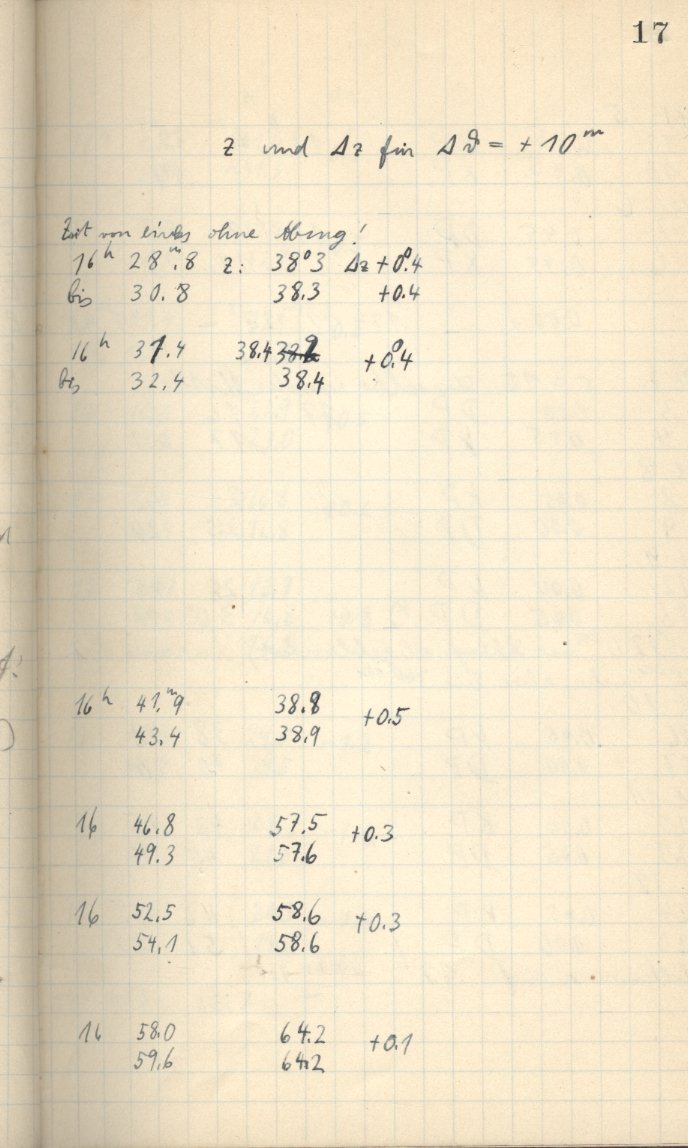 17
z und Δz für Δϑ = + 10ᵐ
Zeit von ohne
16ʰ 28ᵐ.8 z: 38°3 Δz +0°.4
bis 30.8 38.3 +0.4
16ʰ 31.4 38.4 +0°.4
bis 32.4 38.4
16ʰ 41.ᵐ9 38.8 +0.5
43.4 38.9
16 46.8 57.5 +0.3
49.3 57.6
16 52.5 58.6 +0.3
54.1 58.6
16 58.0 64.2 +0.1
59.6 64.2